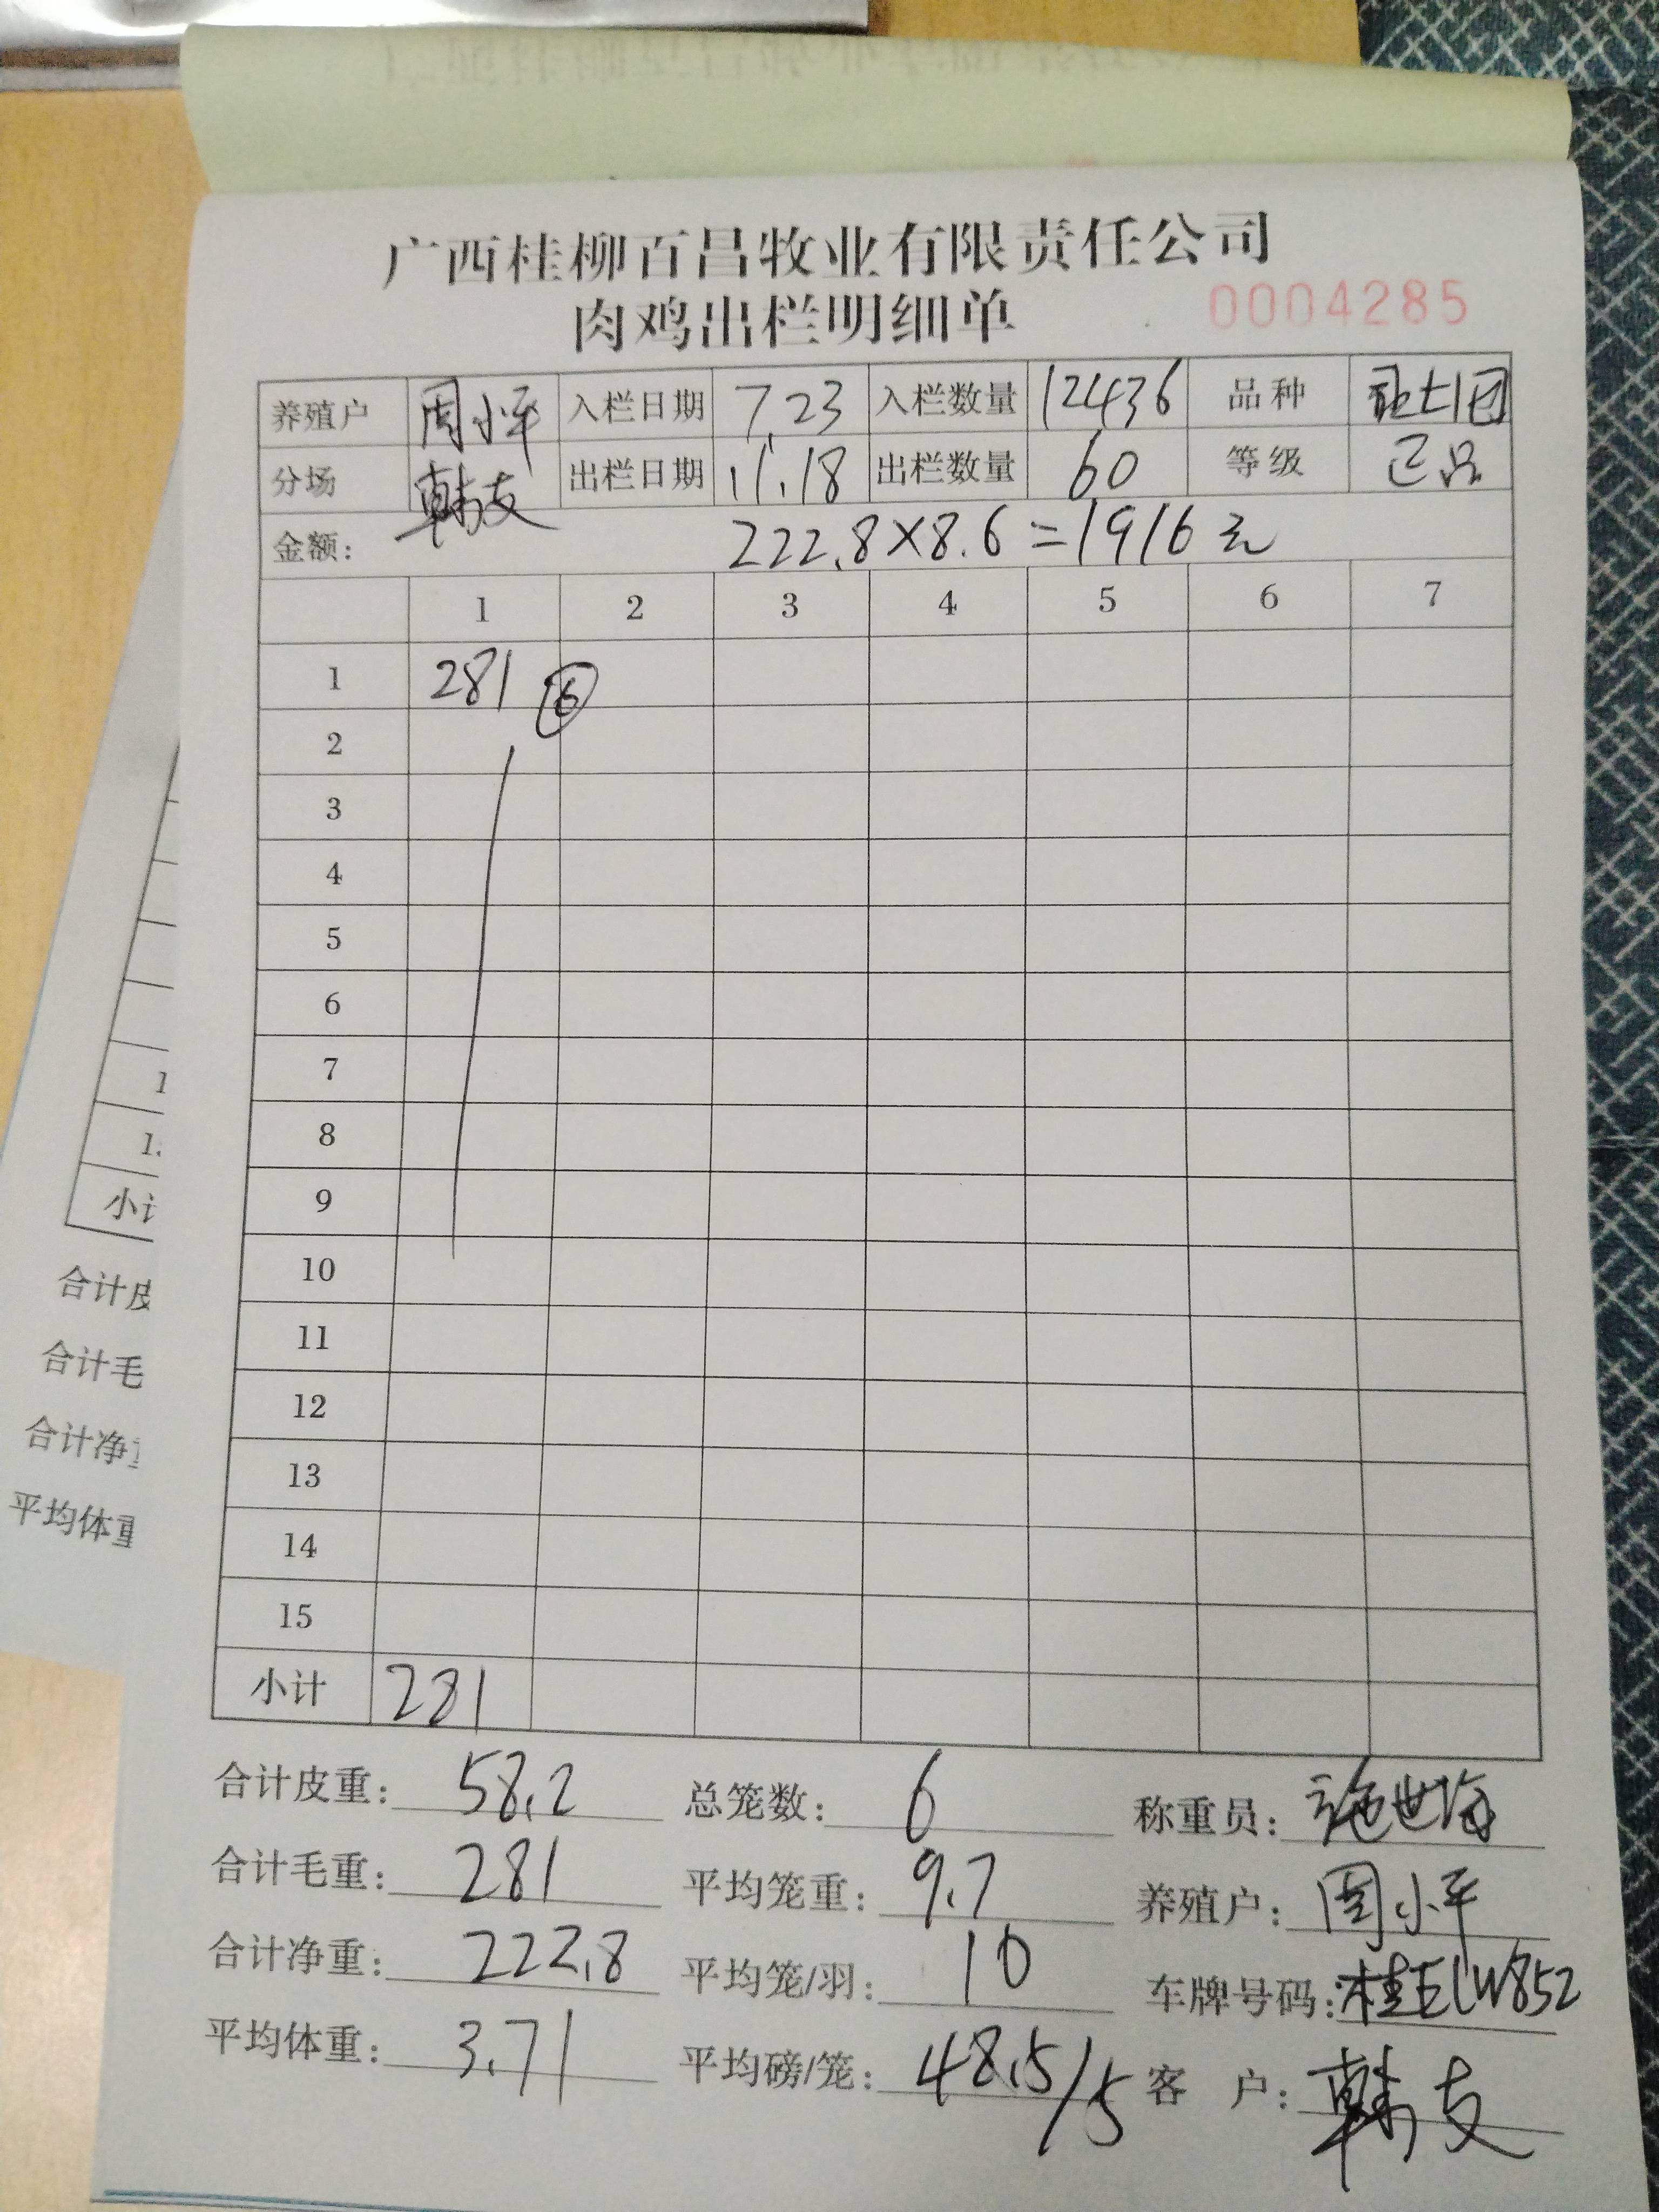 广西桂柳百昌牧业有限责任公司
肉鸡出栏明细单 0004285
养殖户 周小平 入栏日期 7.23 入栏数量 12436 品种
分场 韩友 出栏日期 11.18 出栏数量 60 等级 正品
金额: 222.8×8.6=1916元
1 2 3 4 5 6 7
1 281 ⑥
2
3
4
5
6
7
8
9
10
11
12
13
14
15
小计 281
合计皮重: 58.2 总笼数: 6 称重员: 施世海
合计毛重: 281 平均笼重: 9.7 养殖户: 周小平
合计净重: 222.8 平均笼/羽: 10 车牌号码: 桂ELW852
平均体重: 3.71 平均磅/笼: 48.5/5 客户: 韩友
1
1
小计
合计皮
合计毛
合计净重
平均体重